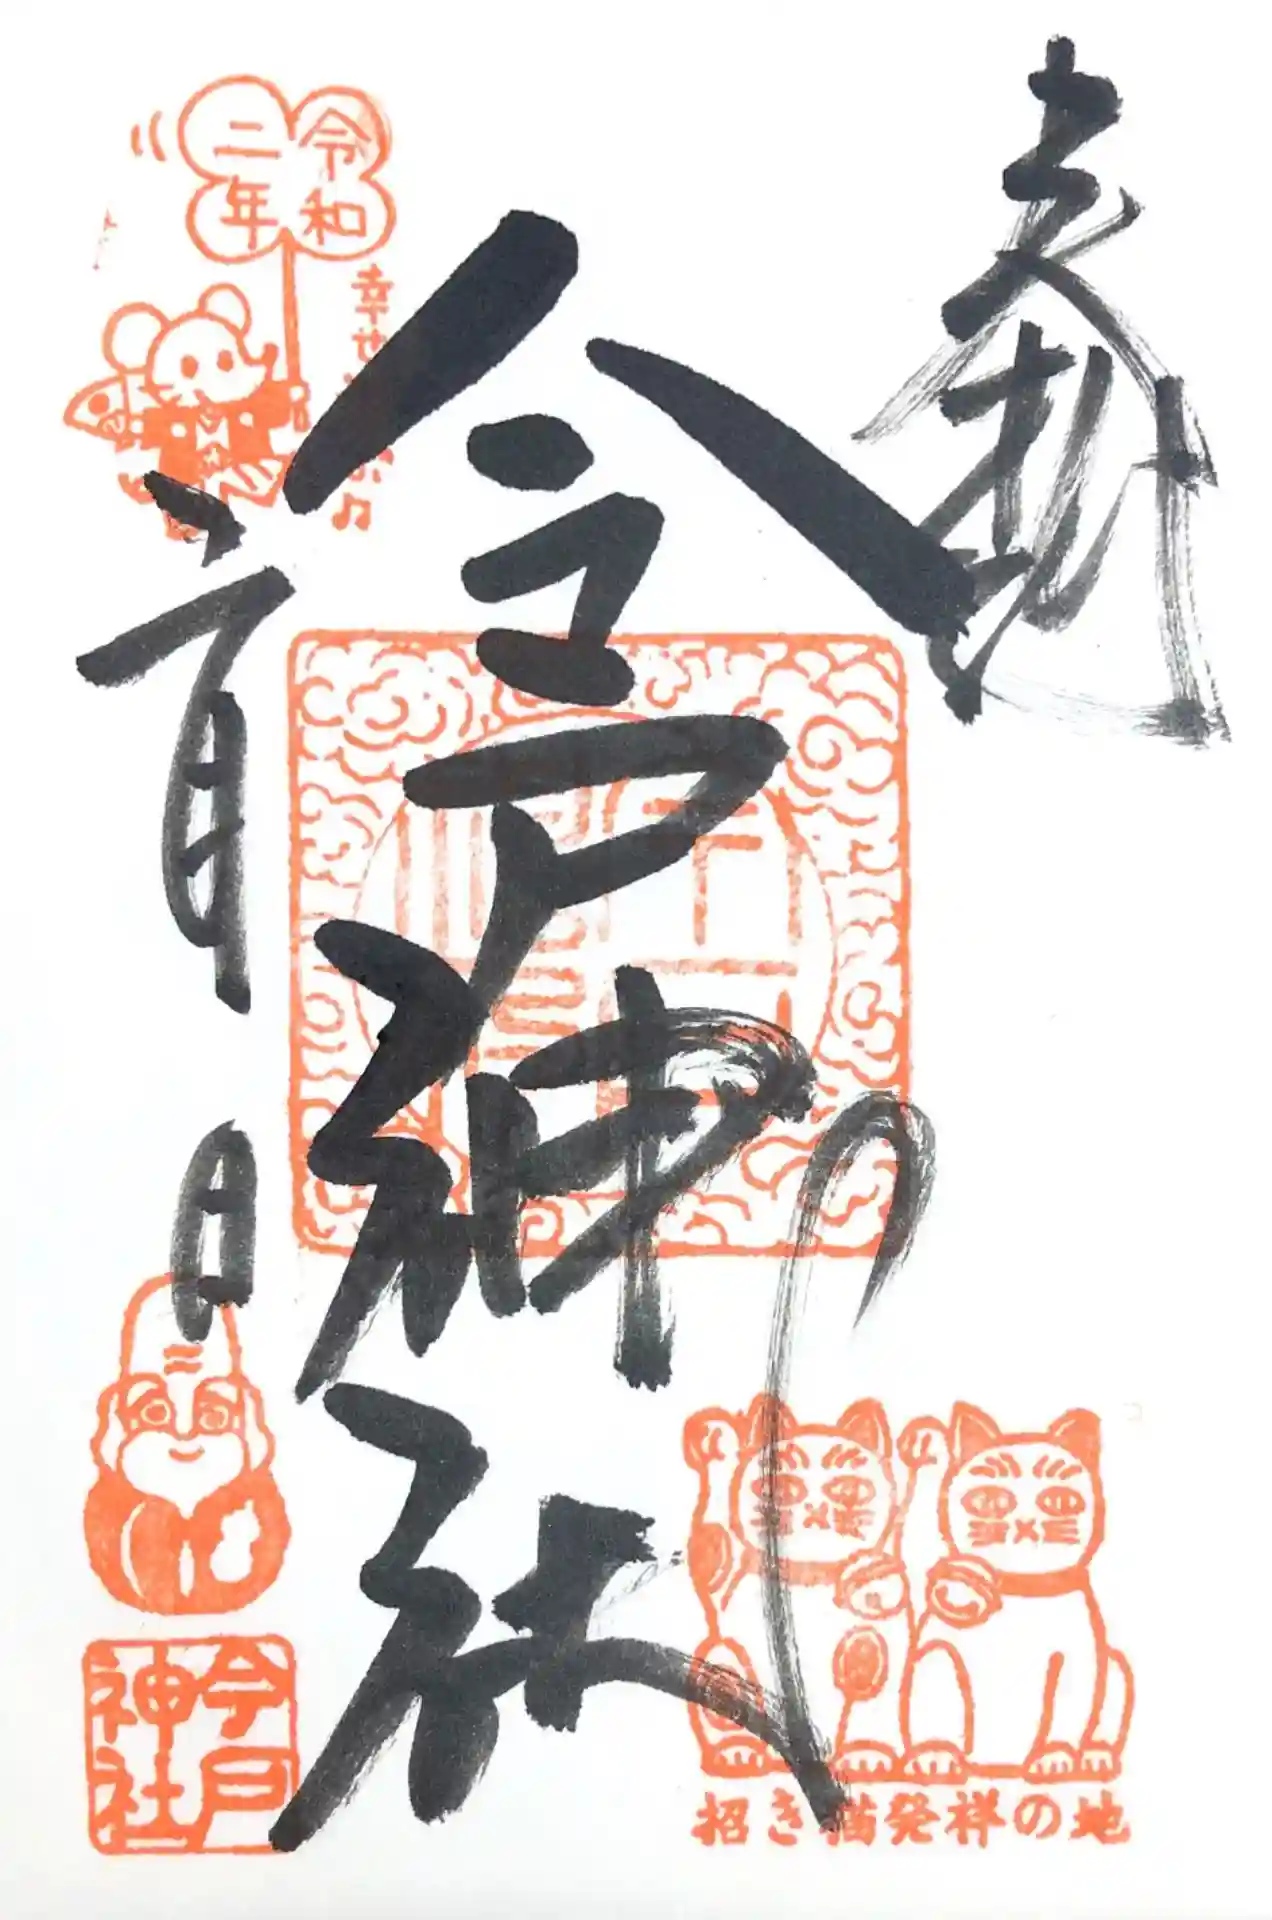 奉拝
今戸神社
令和
二年
幸せ
一月
日
今戸
神社
招き猫発祥の地